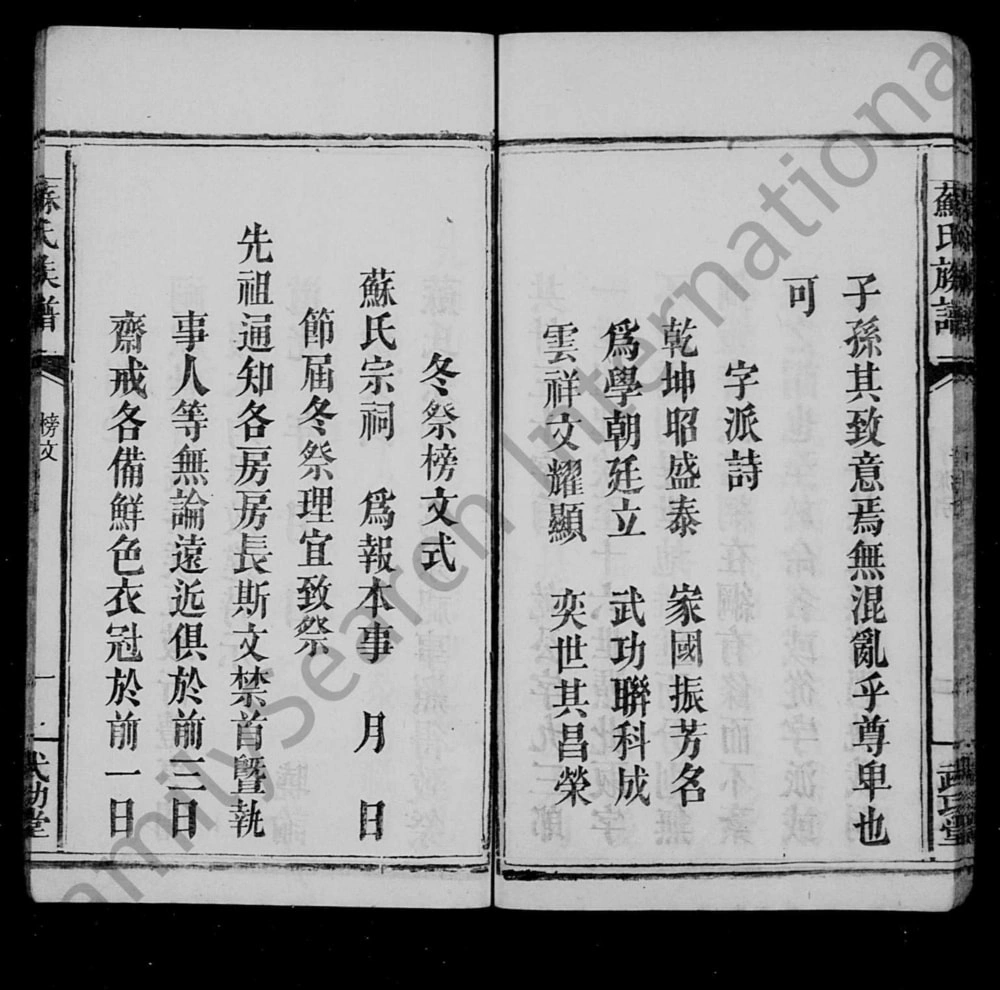 蘇氏族譜
子孫其致意焉無混亂乎尊卑也
可
字派詩
乾坤昭盛泰 家國振芳名
爲學朝廷立 武功聯科成
雲祥文耀顯 奕世其昌榮
冬祭榜文式
蘇氏宗祠 爲報本事 月 日
節届冬祭理宜致祭
先祖通知各房房長斯文禁首曁執
事人等無論遠近俱於前三日
齋戒各備鮮色衣冠於前一日
蘇氏族譜 榜文 一 武功堂
FamilySearch International